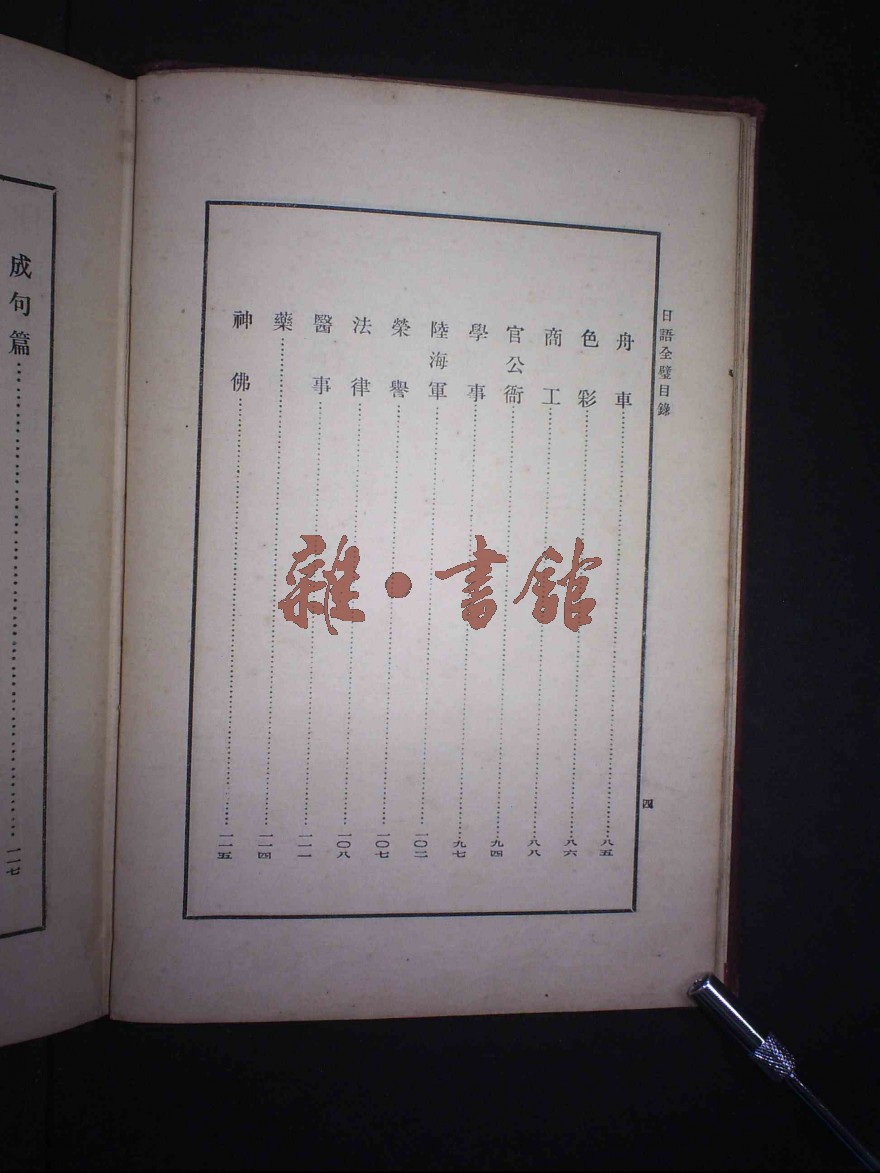 日語全璧目錄
四
舟車⋯⋯八五
色彩⋯⋯八六
商工⋯⋯八八
官公衙⋯⋯九四
學事⋯⋯九七
陸海軍⋯⋯一〇二
榮譽⋯⋯一〇七
法律⋯⋯一〇八
醫事⋯⋯一一一
藥⋯⋯一一四
神佛⋯⋯一一五
成句篇⋯⋯一一七
雜•書館